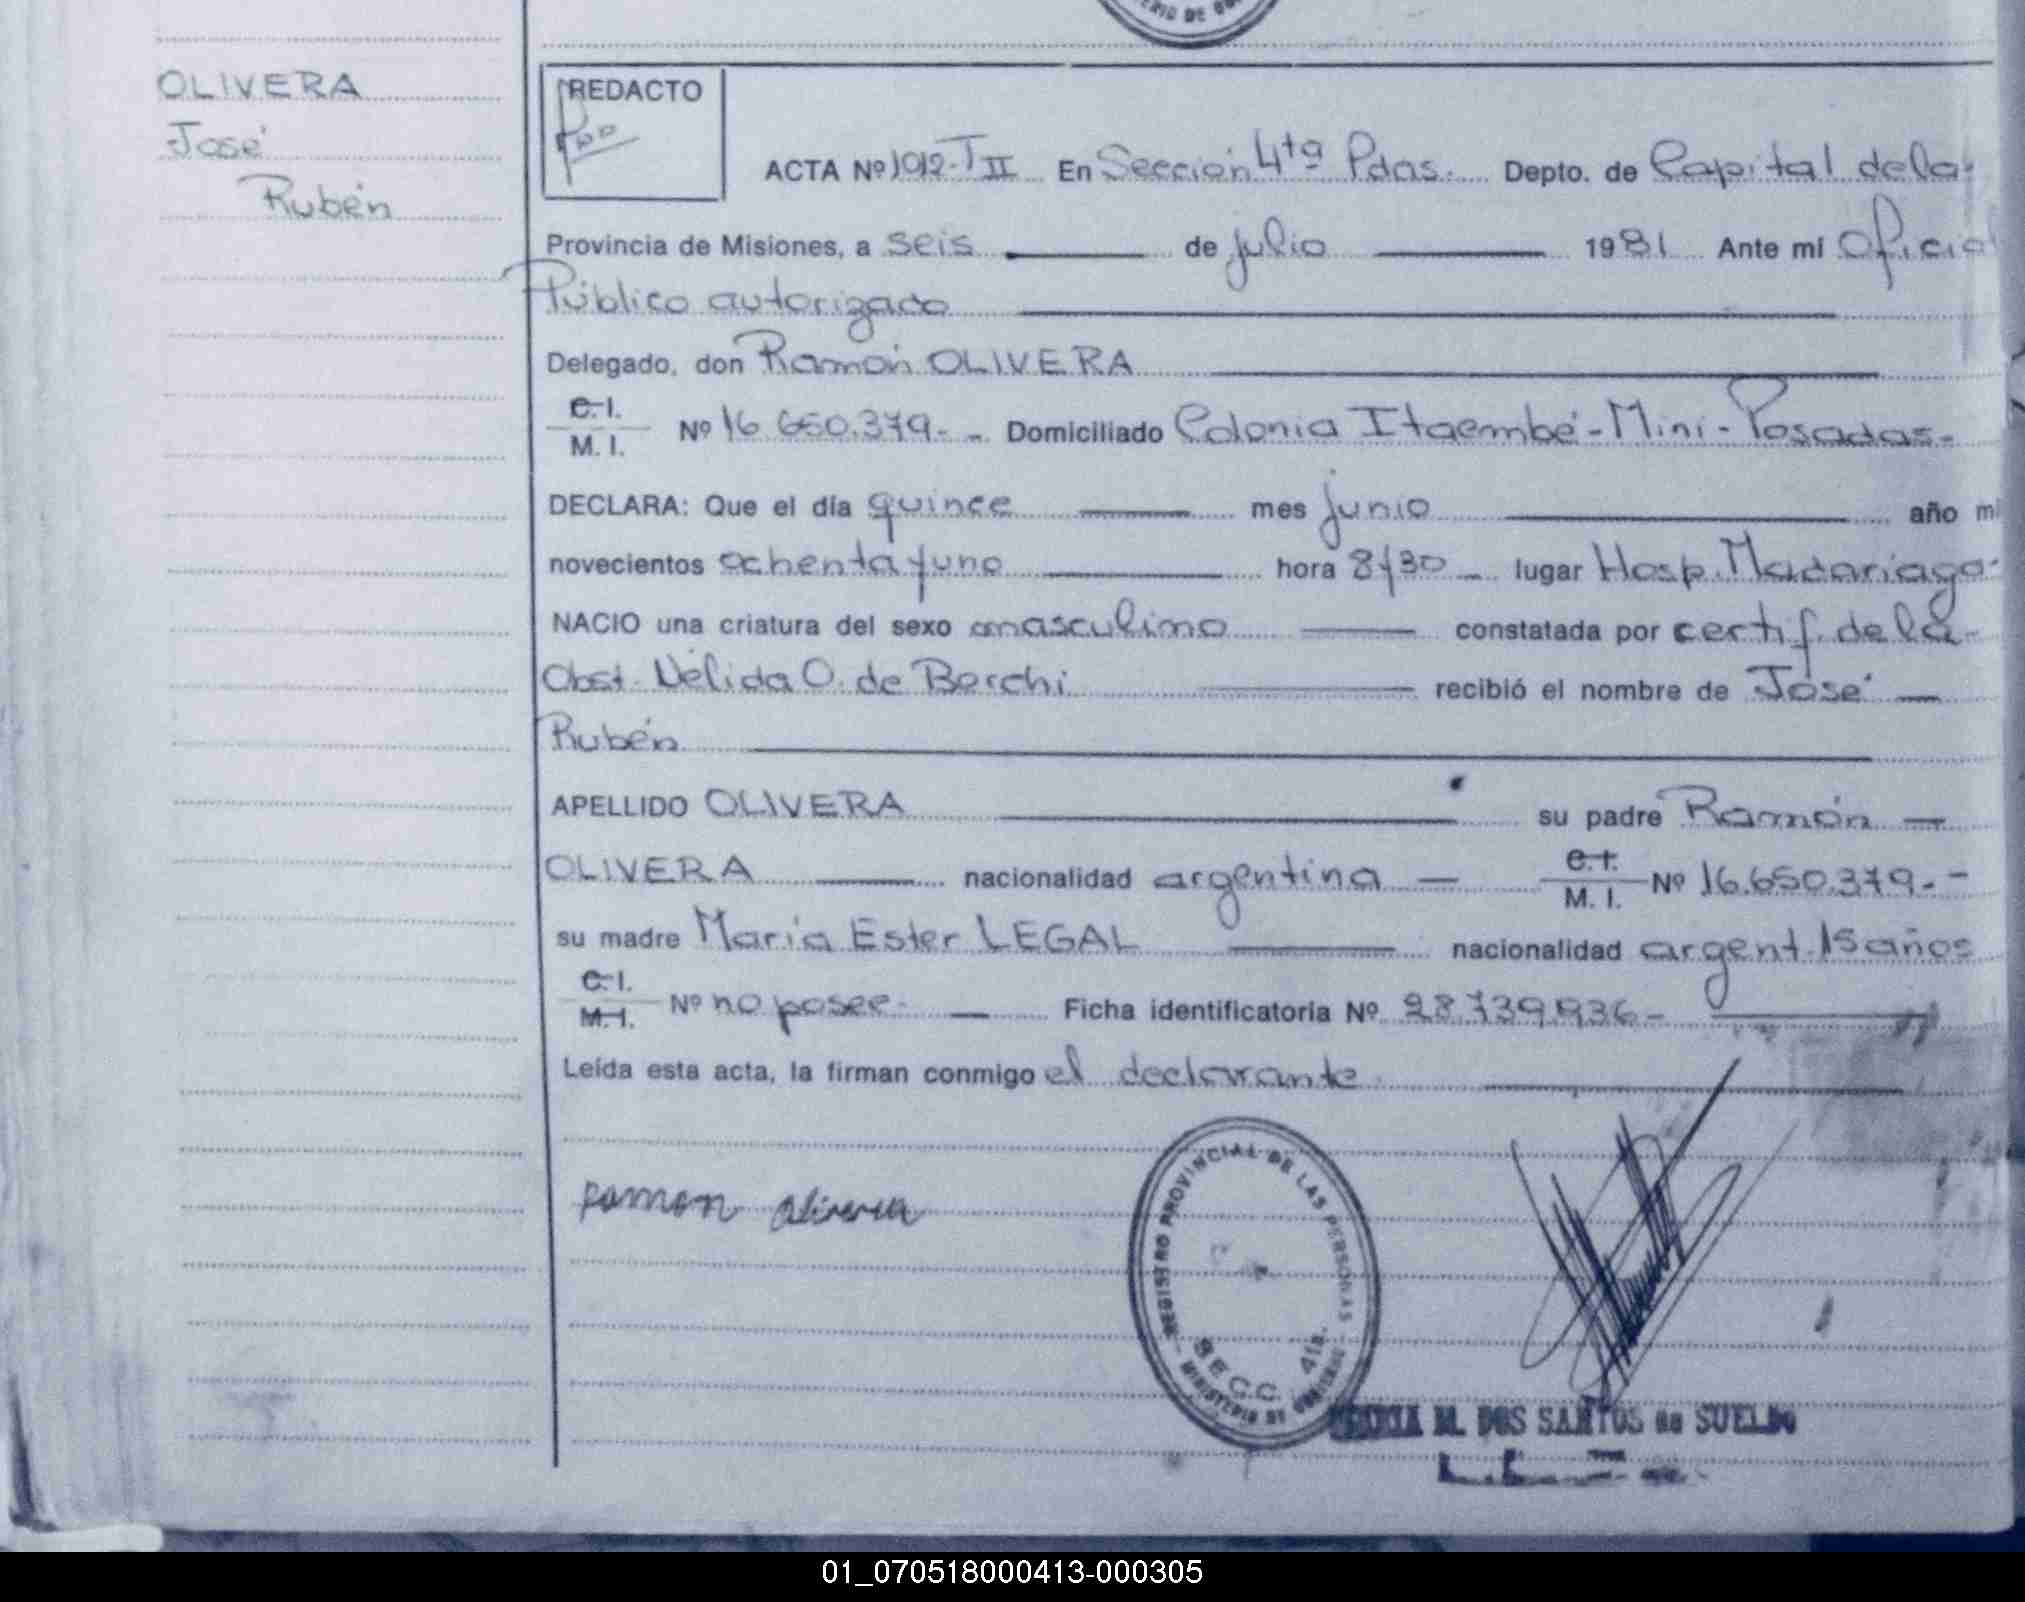 OLIVERA
José
Rubén
REDACTO
ACTA Nº 1012-T II En Sección 4ta Pdas. Depto. de Capital de la
Provincia de Misiones, a seis de julio 1981 Ante mi Oficial
Público autorizado
Delegado, don Ramón OLIVERA
C.I.
M. I. Nº 16.650.379.- Domiciliado Colonia Itaembé-Mini-Posadas-
DECLARA: Que el día quince mes junio año mi
novecientos ochenta y uno hora 8y30 lugar Hosp. Madariaga-
NACIO una criatura del sexo masculino constatada por certif. de la
Obst. Nélida O. de Borchi recibió el nombre de José
Rubén
APELLIDO OLIVERA su padre Ramón
OLIVERA nacionalidad argentina C.I.
M. I. Nº 16.650.379.-
su madre María Ester LEGAL nacionalidad argent. 15 años
C.I.
M.I. Nº no posee- Ficha identificatoria Nº 28.739.936-
Leída esta acta, la firman conmigo el declarante
ramon olivera
REGISTRO PROVINCIAL DE LAS PERSONAS
SECC. 4ta.
MINISTERIO DE
M. DOS SANTOS de SUELDO
01_070518000413-000305